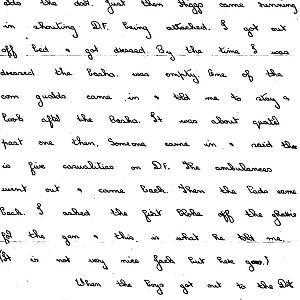 into the dot. Just then Shapp came running
in shouting D.F. being attacked. I got out
off bed & got dressed. By the time I was
dressed the basha was empty. One of the
com guards came in & told me to stay &
look after the Basha. It was about quarter
past one then. Someone came in & said there
is five casualties on D.F. The ambulances
went out & came back. Then the lads came
back. I asked the first bloke off the
for the gen & this is what he told me.
(It is not very nice facts but here goes.)
When the boys got out to the D.F.